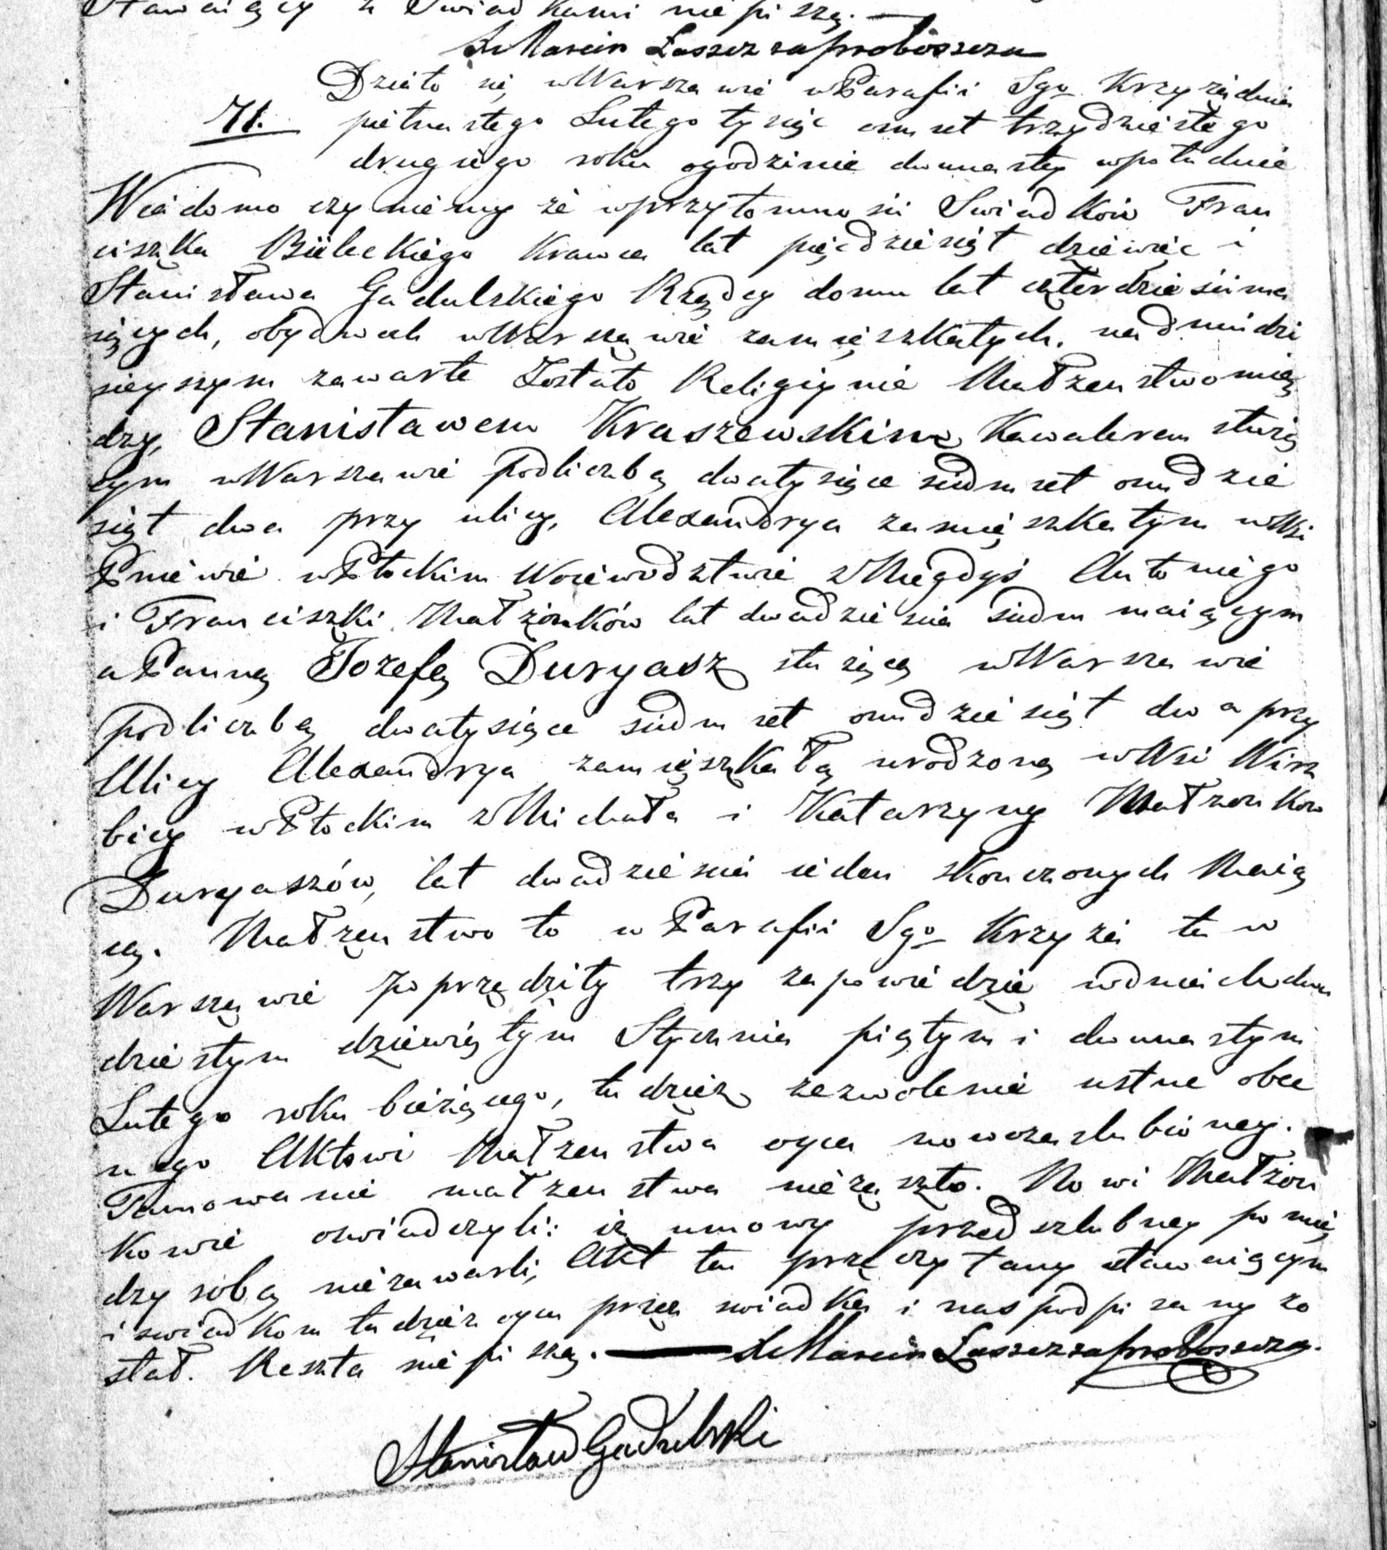 Stawaiący z Swiadkami niepiszą.
X Marcin Łaszcz za proboszcza
Działo się w Warszawie w Parafii Sgo Krzyża dnia
71. piętnastego Lutego tysiąc osmset trzydziestego
drugiego roku o godzinie dwunastey w południe
Wiadomo czyniemy że w przytomności Swiadków Fran
ciszka Bieleckiego Krawca lat pięćdziesiąt dziewięć i
Stanisława Gadulskiego Rządcy domu lat czterdzieści ma
iących, obydwuch w Warszawie zamięszkałych, na dniu dzi
sieyszym zawarte Zostało Religiynie Małżenstwo mię
dzy, Stanisławem Kraszewskim, Kawalerem służą
cym w Warszawie pod liczbą dwatysiące siedmset osmdzie
siąt dwa przy ulicy, Alexandrya zamięszkałym w Wsi
Pniewie w Płockim Woiewodztwie z Niegdyś Antoniego
i Franciszki Małżonków lat dwadzieścia siedm maiącym
a Panną Jozefą Duryasz służącą w Warszawie
pod liczbą dwatysiące siedmset osmdziesiąt dwa przy
Ulicy Alexandrya zamięszkałą urodzoną w Wsi Wirz
bicy w Płockim z Michała i Katarzyny Małżonków
Duryaszów, lat dwadzieścia ieden skonczonych Maią
cą. Małżenstwo to w Parafii Sgo Krzyża tu w
Warszawie poprzedziły trzy zapowiedzie w dniach dwu
dziestym dziewiątym Stycznia piątym i dwunastym
Lutego roku bieżącego, tudzież zezwolenie ustne obec
nego Aktowi Małżenstwa oyca nowozaslubioney.
Tamowanie małżenstwa niezaszło. Nowi Małżon
kowie oswiadczyli: iż umowy przedszlubney pomię
dzy sobą niezawarli, Akt ten przeczytany stawaiącym
i swiadkom tudzież oycu przez swiadka i nas podpisany zo
stał. Reszta niepiszą. X Marcin Łaszcz za proboszcza.
Stanisław Gadulski